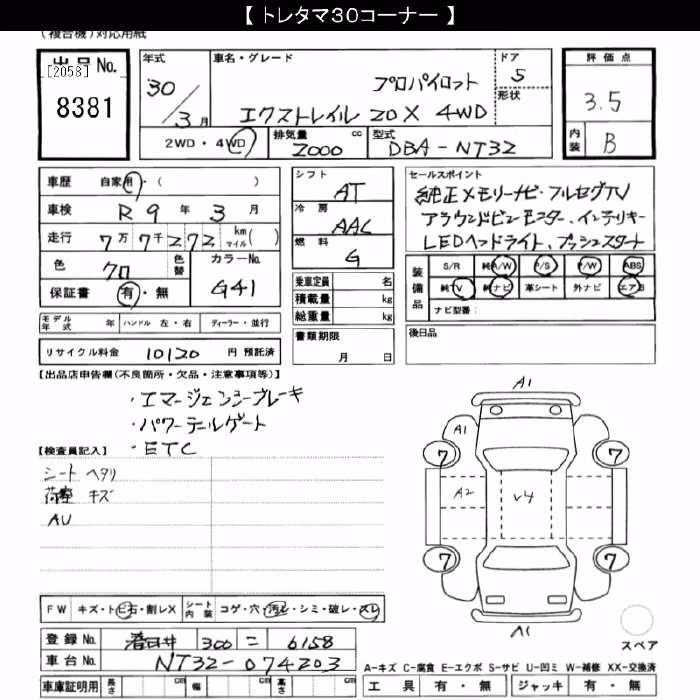 【 トレタマ３０コーナー 】
(複合機)対応用紙
出品No.
[2058]
8381
年式
30/3月
車名・グレード
プロパイロット
エクストレイル 20X 4WD
ドア
5
形状
評価点
3.5
内装
B
2WD・4WD
排気量
2000
cc
型式
DBA-NT32
車歴
自家用・( )
車検
R 9 年 3 月
走行
7万7千272
km
マイル( )
色
クロ
色替
カラーNo.
G41
保証書
有・無
シフト
AT
冷房
AAC
燃料
G
乗車定員 名
積載量 kg
総重量 kg
書類期限
月 日
セールスポイント
純正メモリーナビ・フルセグTV
アラウンドビューモニター、インテリキー
LEDヘッドライト、プッシュスタート
装備品
S/R 純A/W P/S P/W ABS
純TV 純ナビ 革シート 外ナビ エアB
ナビ型番:
後日品
モデル年式 年 ハンドル 左・右 ディーラー・並行
リサイクル料金 10120 円 預託済
【出品店申告欄(不良箇所・欠品・注意事項等)】
・エマージェンシーブレーキ
・パワーテールゲート
・ETC
【検査員記入】
シート ヘタリ
荷室 キズ
AU
A1
A1
7
7
A2
√4
7
7
A1
スペア
FW キズ・トビ石・割レX
シート内装 コゲ・穴・汚レ・シミ・破レ・スレ
登録No. 春日井 300 ニ 6158
車台No. NT32-074203
車庫証明用 長さ cm 幅 cm 高さ cm
A-キズ C-腐食 E-エクボ S-サビ U-凹ミ W-補修 XX-交換済
工具 有・無 ジャッキ 有・無